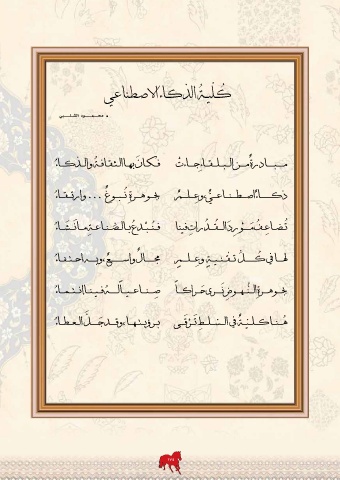 كُلّيةُ الذّكاءِ الاصطناعي
محمود الشلبي
مبادرةٌ من البلقا جاءتْ فكانَ بها الثقافةُ والذّكاءُ
ذكاءٌ اصطناعيٌّ وعلمٌ بجوهرةٍ نبوغٌ ... وارتقاءُ
تُضاعفُ مَوْرِدَ القُدُراتِ فينا فتُبدعُ بالصّناعةِ ما تشاءُ
لها في كُلِّ تقنيةٍ وعِلمٍ مجالٌ واسعٌ، وبه احتفاءُ
بجوهرةِ النُّهوضِ نرى حَراكاً صِناعياً لهُ فينا انتماءُ
هُنا كليةٌ في السّلط ترقى برؤيتها، وقد جَلَّ العطاءُ